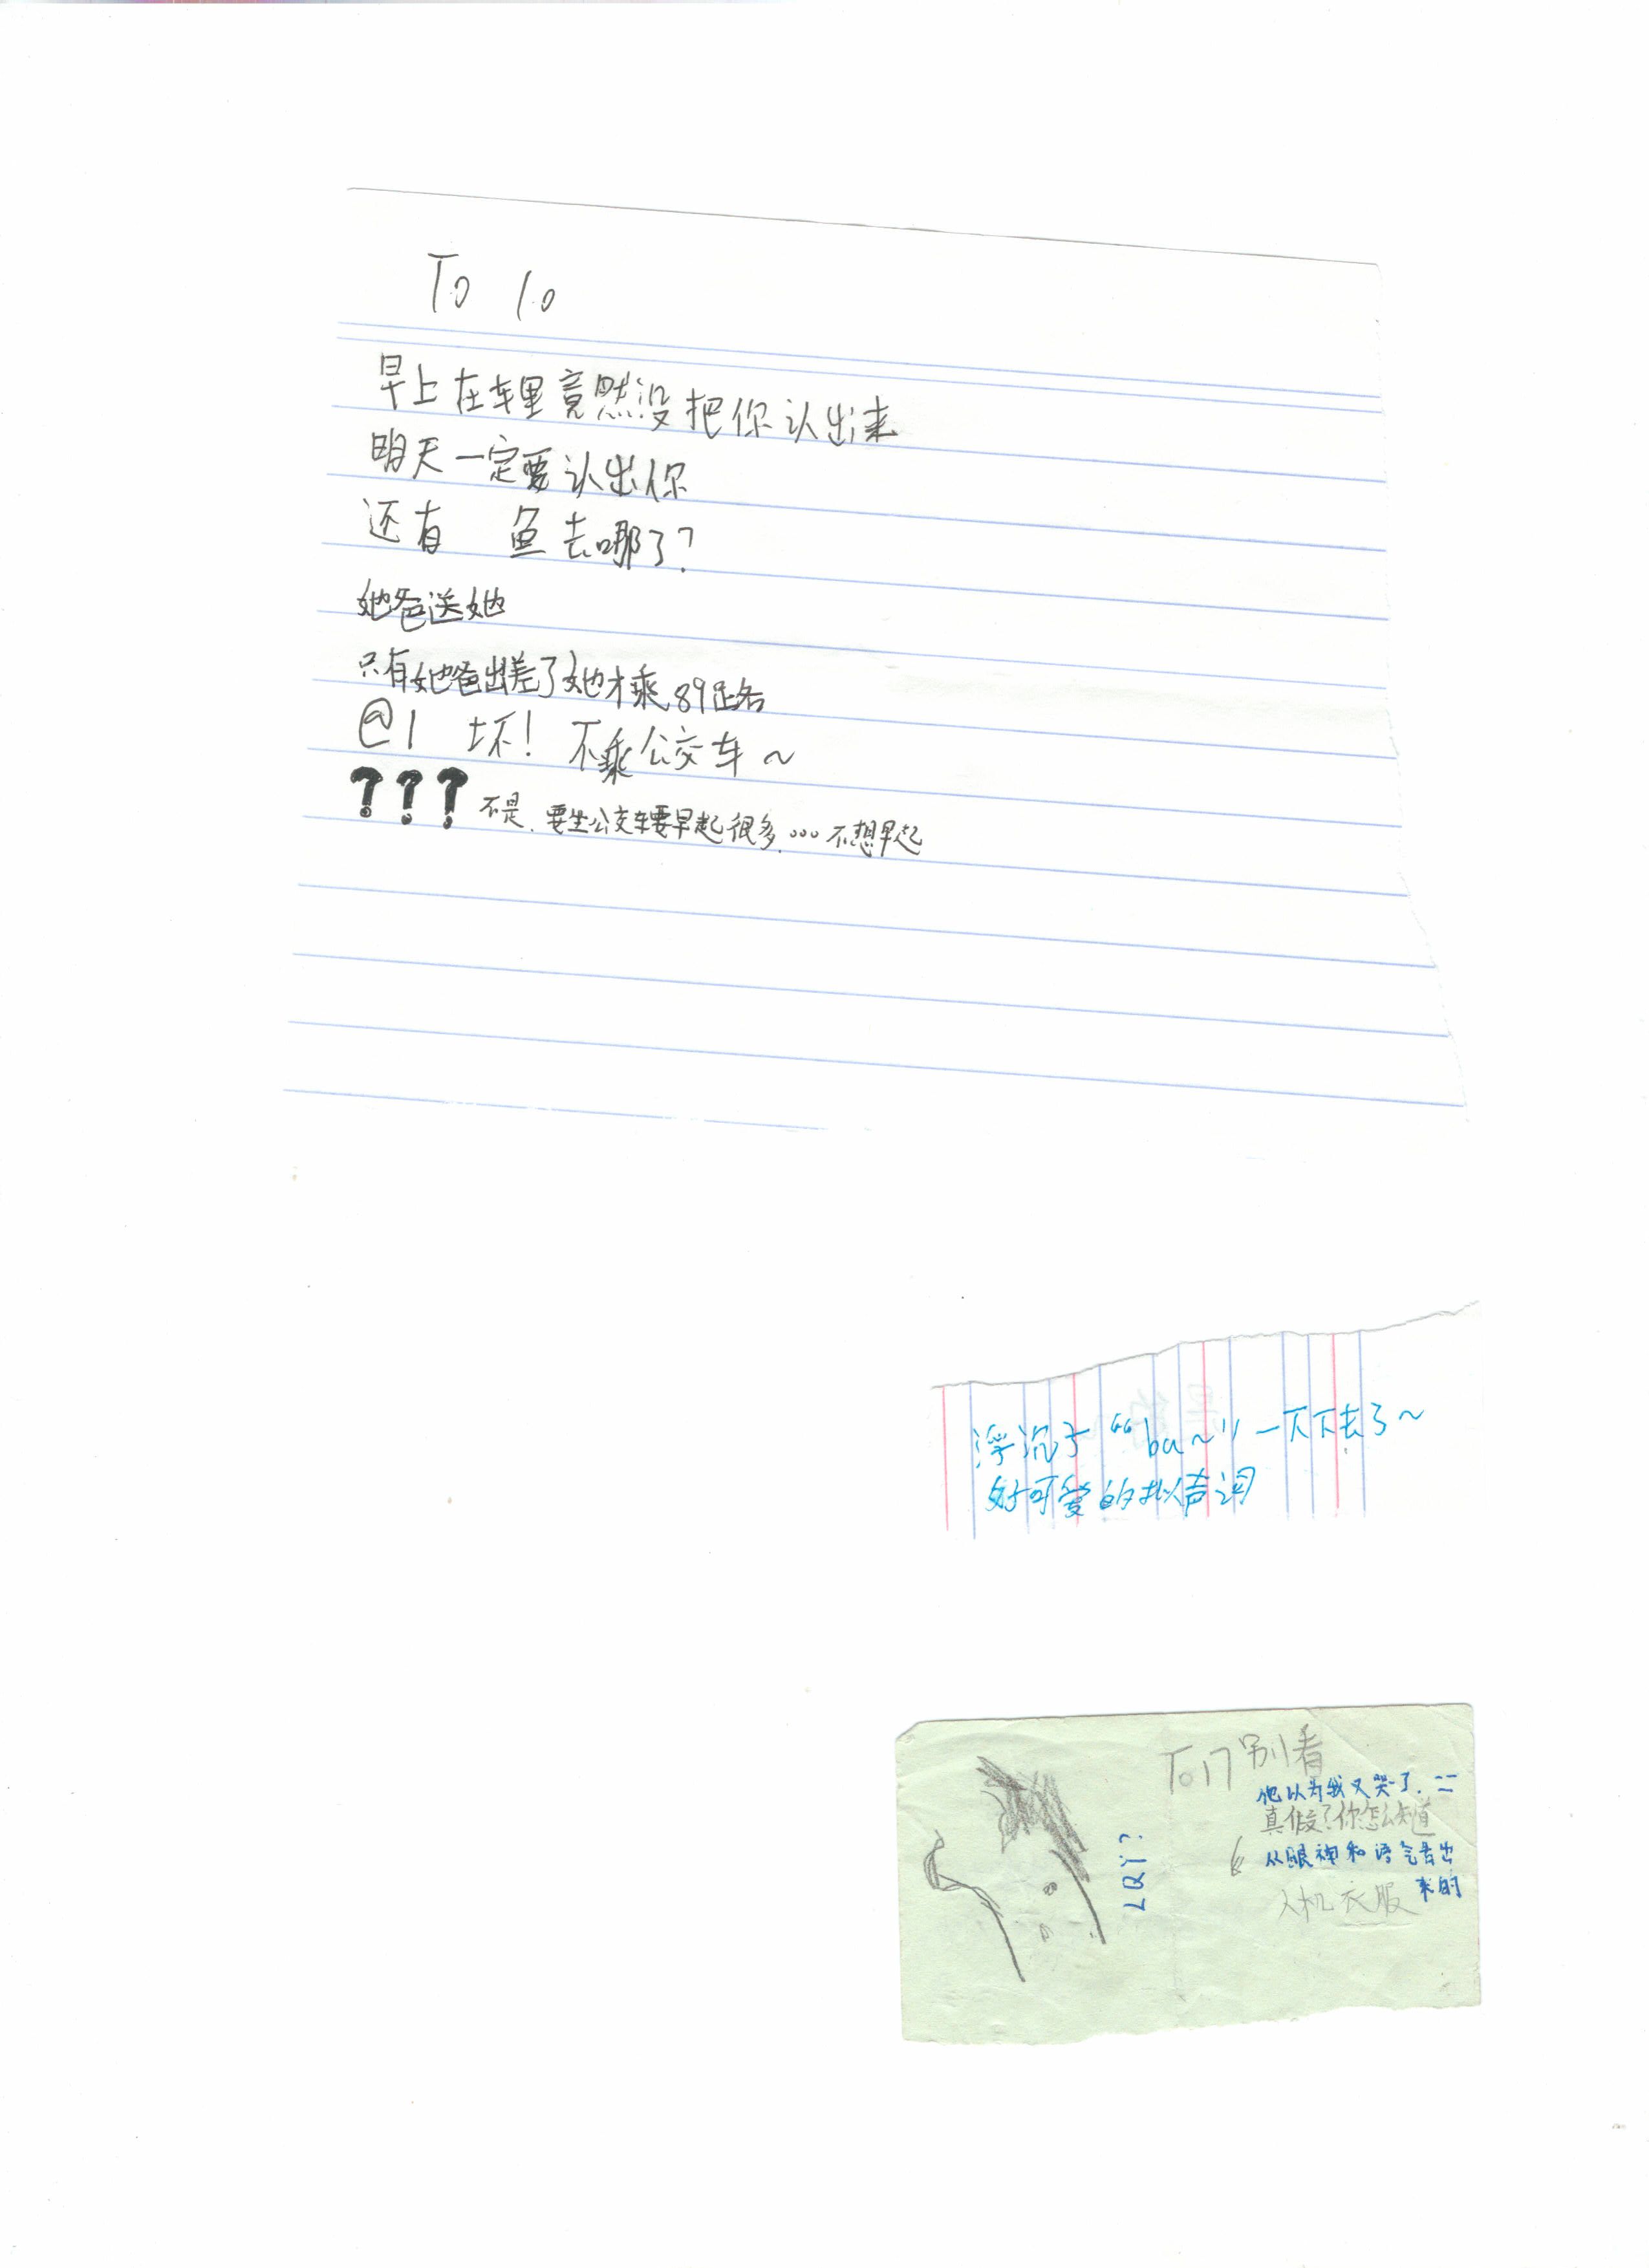 To 10
早上在车里竟然没把你认出来
明天一定要认出你
还有 鱼去哪了?
她爸送她
只有她爸出差了她才乘89路
@1 坏! 不乘公交车~
??? 不是.要坐公交车要早起很多.…不想早起
浮沉子“bu~”一下下去了~
好可爱的拟声词
To 17 别看
他以为我又哭了.
真假?你怎么知道
从眼神和语气看出
来的
人机 衣服
LQY?